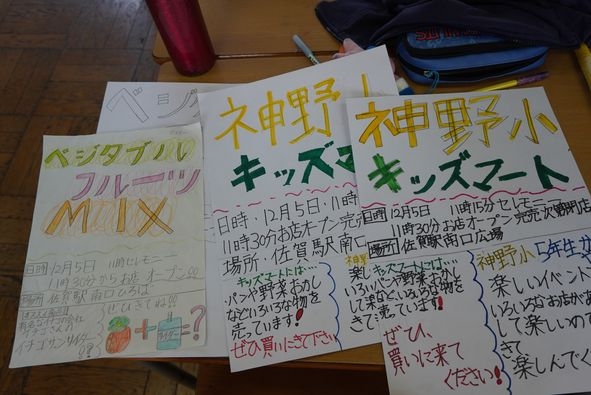 ベジ
ベジタブル
フルーツ
MIX
日時 12月5日 11時セレモニー
11時30分からお店オープン!!
場所 佐賀駅南口ひろば
ぜひきてね!!
イチゴサンサイダー
+ = ?
神野小
キッズマー
日時・12月5日・11時
11時30分お店オープン完売
場所・佐賀駅南口
キッズマートは…
パンや野菜おかし
などいろいろな物を
売っています!
ぜひ買いにきて下さい
神野小
キッズマート
日時 12月5日 11時15分セレモニー
11時30分お店オープン完売次第閉店
場所 佐賀駅南口広場
キッズマートは…
パンや野菜おかし
などいろいろな物を
売っています!
ぜひ、
買いに来て
ください!
神野小5年生が
楽しいイベント
いろいろなお店があ
して楽しいので
きて
楽しんでく